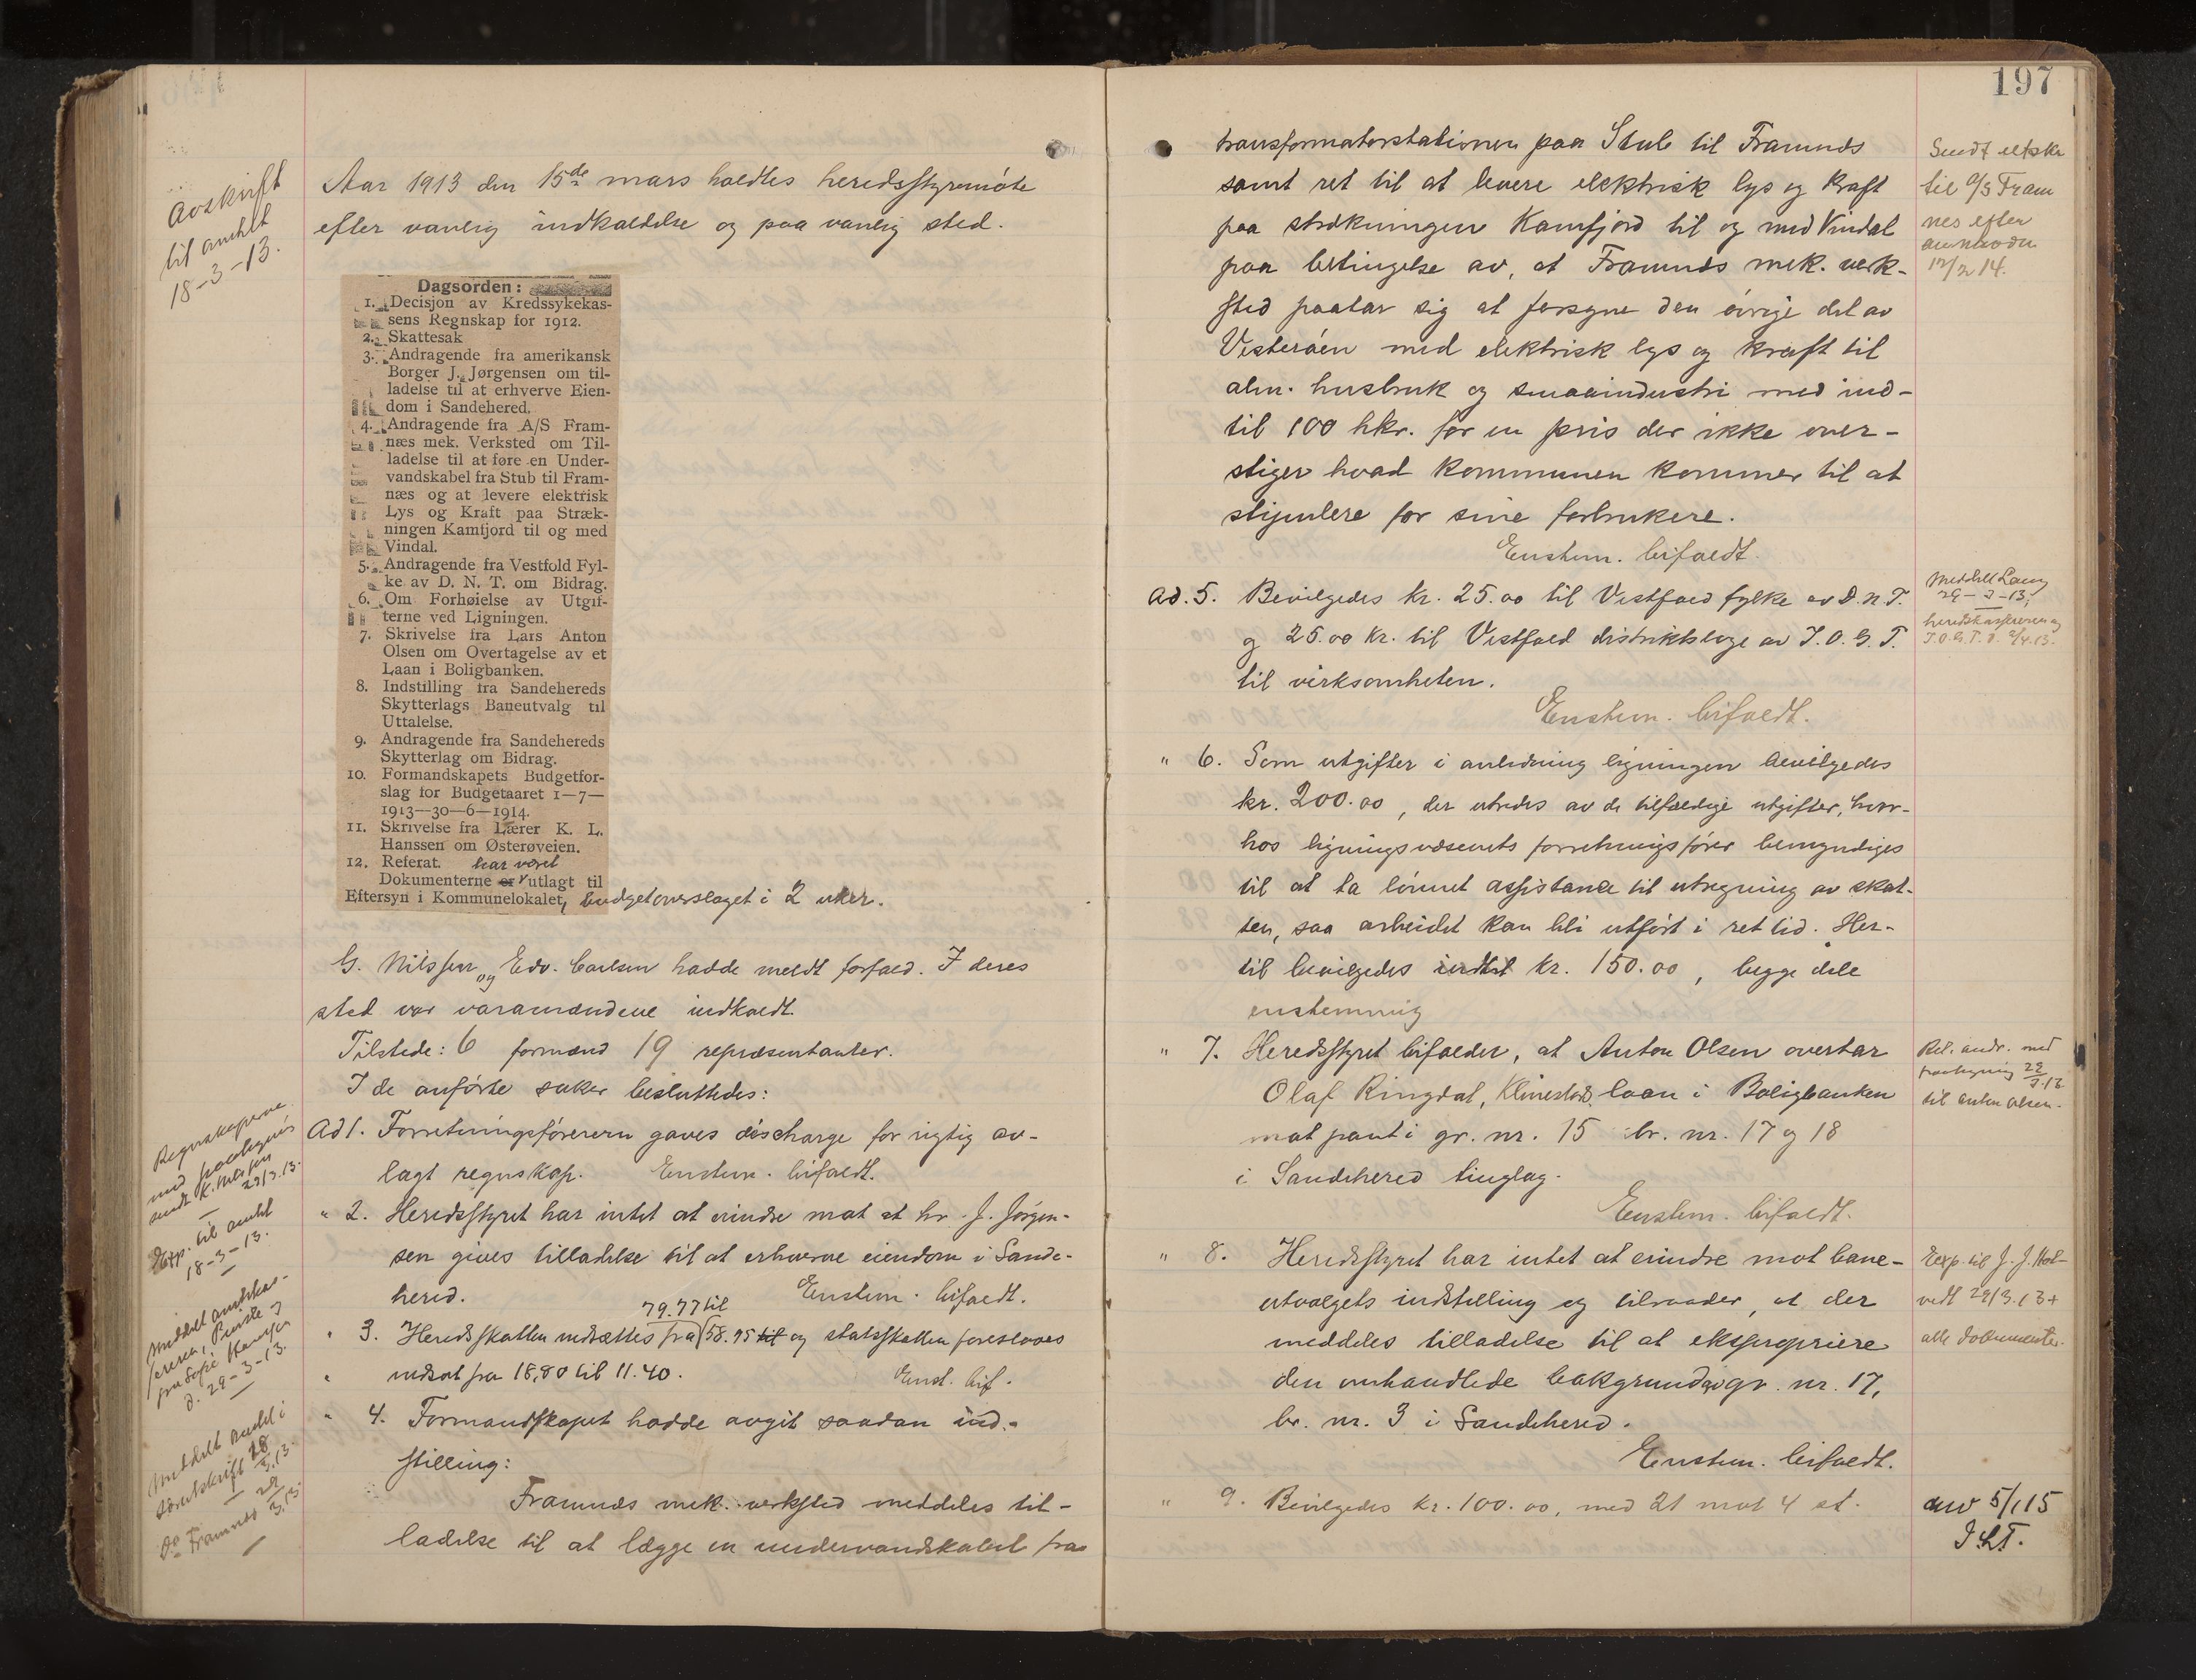 197
Avskrift
til amtet
18-3-13.
Aar 1913 den 15de mars holdtes heredsstyremöte
efter vanlig indkaldelse og paa vanlig sted.
Dagsorden:
1. Decisjon av Kredssykekas-
sens Regnskap for 1912.
2. Skattesak
3. Andragende fra amerikansk
Borger J. Jørgensen om til-
ladelse til at erhverve Eien-
dom i Sandehered.
4. Andragende fra A/S Fram-
næs mek. Verksted om Til-
ladelse til at føre en Under-
vandskabel fra Stub til Fram-
næs og at levere elektrisk
Lys og Kraft paa Stræk-
ningen Kamfjord til og med
Vindal.
5. Andragende fra Vestfold Fyl-
ke av D. N. T. om Bidrag.
6. Om Forhøielse av Utgif-
terne ved Ligningen.
7. Skrivelse fra Lars Anton
Olsen om Overtagelse av et
Laan i Boligbanken.
8. Indstilling fra Sandehereds
Skytterlags Baneutvalg til
Uttalelse.
9. Andragende fra Sandehereds
Skytterlag om Bidrag.
10. Formandskapets Budgetfor-
slag for Budgetaaret 1—7—
1913—30—6—1914.
11. Skrivelse fra Lærer K. L.
Hanssen om Østerøveien.
12. Referat. har været
Dokumenterne er utlagt til
Eftersyn i Kommunelokalet, budgetoverslaget i 2 uker.
G. Nilssen og Edv. Carlsen hadde meldt forfald. I deres
sted var varamændene indkaldt.
Tilstede: 6 formænd 19 repræsentanter.
I de anførte saker besluttedes:
Regnskaperne
med paategnis
sendt K.
29/3.13.
Ad 1. Forretningsförereren gaves discharge for rigtig av-
lagt regnskap. Enstem. bifaldt.
Exp. til amtet
18-3-13.
" 2. Heredsstyret har intet at erindre mot at hr. J. Jörgen-
sen gives tilladelse til at erhverve eiendom i Sande-
hered. Enstem. bifaldt.
Meddelt amtskas-
fra Sofie Hansen
d. 29-3-13.
79.77 til
" 3. Heredsskatten nedsættes fra 58.95 til og statsskatten foreslaaes
" nedsat fra 18,80 til 11.40. Enst. bif.
Meddelt Bull i
særutskrift 28/3.13.
Do Framnæs 29/3.13.
" 4. Formandskapet hadde avgit saadan ind-
stilling:
Framnæs mek. verksted meddeles til-
ladelse til at lægge en undervandskabel fra
transformatorstationen paa Stub til Framnæs
samt ret til at levere elektrisk lys og kraft
paa strækningen Kamfjord til og med Vindal
paa betingelse av, at Framnæs mek. verk-
sted paatar sig at forsyne den övrige del av
Vesteröen med elektrisk lys og kraft til
alm. husbruk og smaaindustri med ind-
til 100 hkr. for en pris der ikke over-
stiger hvad kommunen kommer til at
stipulere for sine forbrukere.
Enstem. bifaldt.
Sendt utskr
til A/S Fram
nes efter
anmodn
12/2 14.
Ad. 5. Bevilgedes kr. 25.00 til Vestfold fylke av D.N.T.
og 25.00 kr. til Vestfold distriktsloge av I.O.G.T.
til virksomheten.
Enstem. bifaldt.
Meddelt Lang
29-3-13,
heredskassereren og
I.O.G.T. d. 2/4.13.
" 6. Som utgifter i anledning ligningen bevilgedes
kr. 200.00, der utredes av de tilfældige utgifter, hvor-
hos ligningsvæsenets forretningsförer bemyndiges
til at ta lönnet assistance til utregning av skat-
ten, saa arbeidet kan bli utfört i ret tid. Her-
til bevilgedes indtil kr. 150.00, begge dele
enstemmig
" 7. Heredsstyret bifalder, at Anton Olsen overtar
Olaf Ringdal, Klinestad, laan i Boligbanken
mot pant i gr. nr. 15 br. nr. 17 og 18
i Sandehered tinglag.
Enstem. bifaldt.
Ret. andr. med
paategning 29/3.13
til Anton Olsen.
" 8. Heredsstyret har intet at erindre mot bane-
utvalgets indstilling og tilraader, at der
meddeles tilladelse til at ekspropriere
den omhandlede bakgrund av gr. nr. 17,
br. nr. 3 i Sandehered.
Enstem. bifaldt.
Exp. til J. J. Hol-
vedt 29/3.13 +
alle dokumenter.
" 9. Bevilgedes kr. 100.00, med 21 mot 4 st.
anv 5/1 15